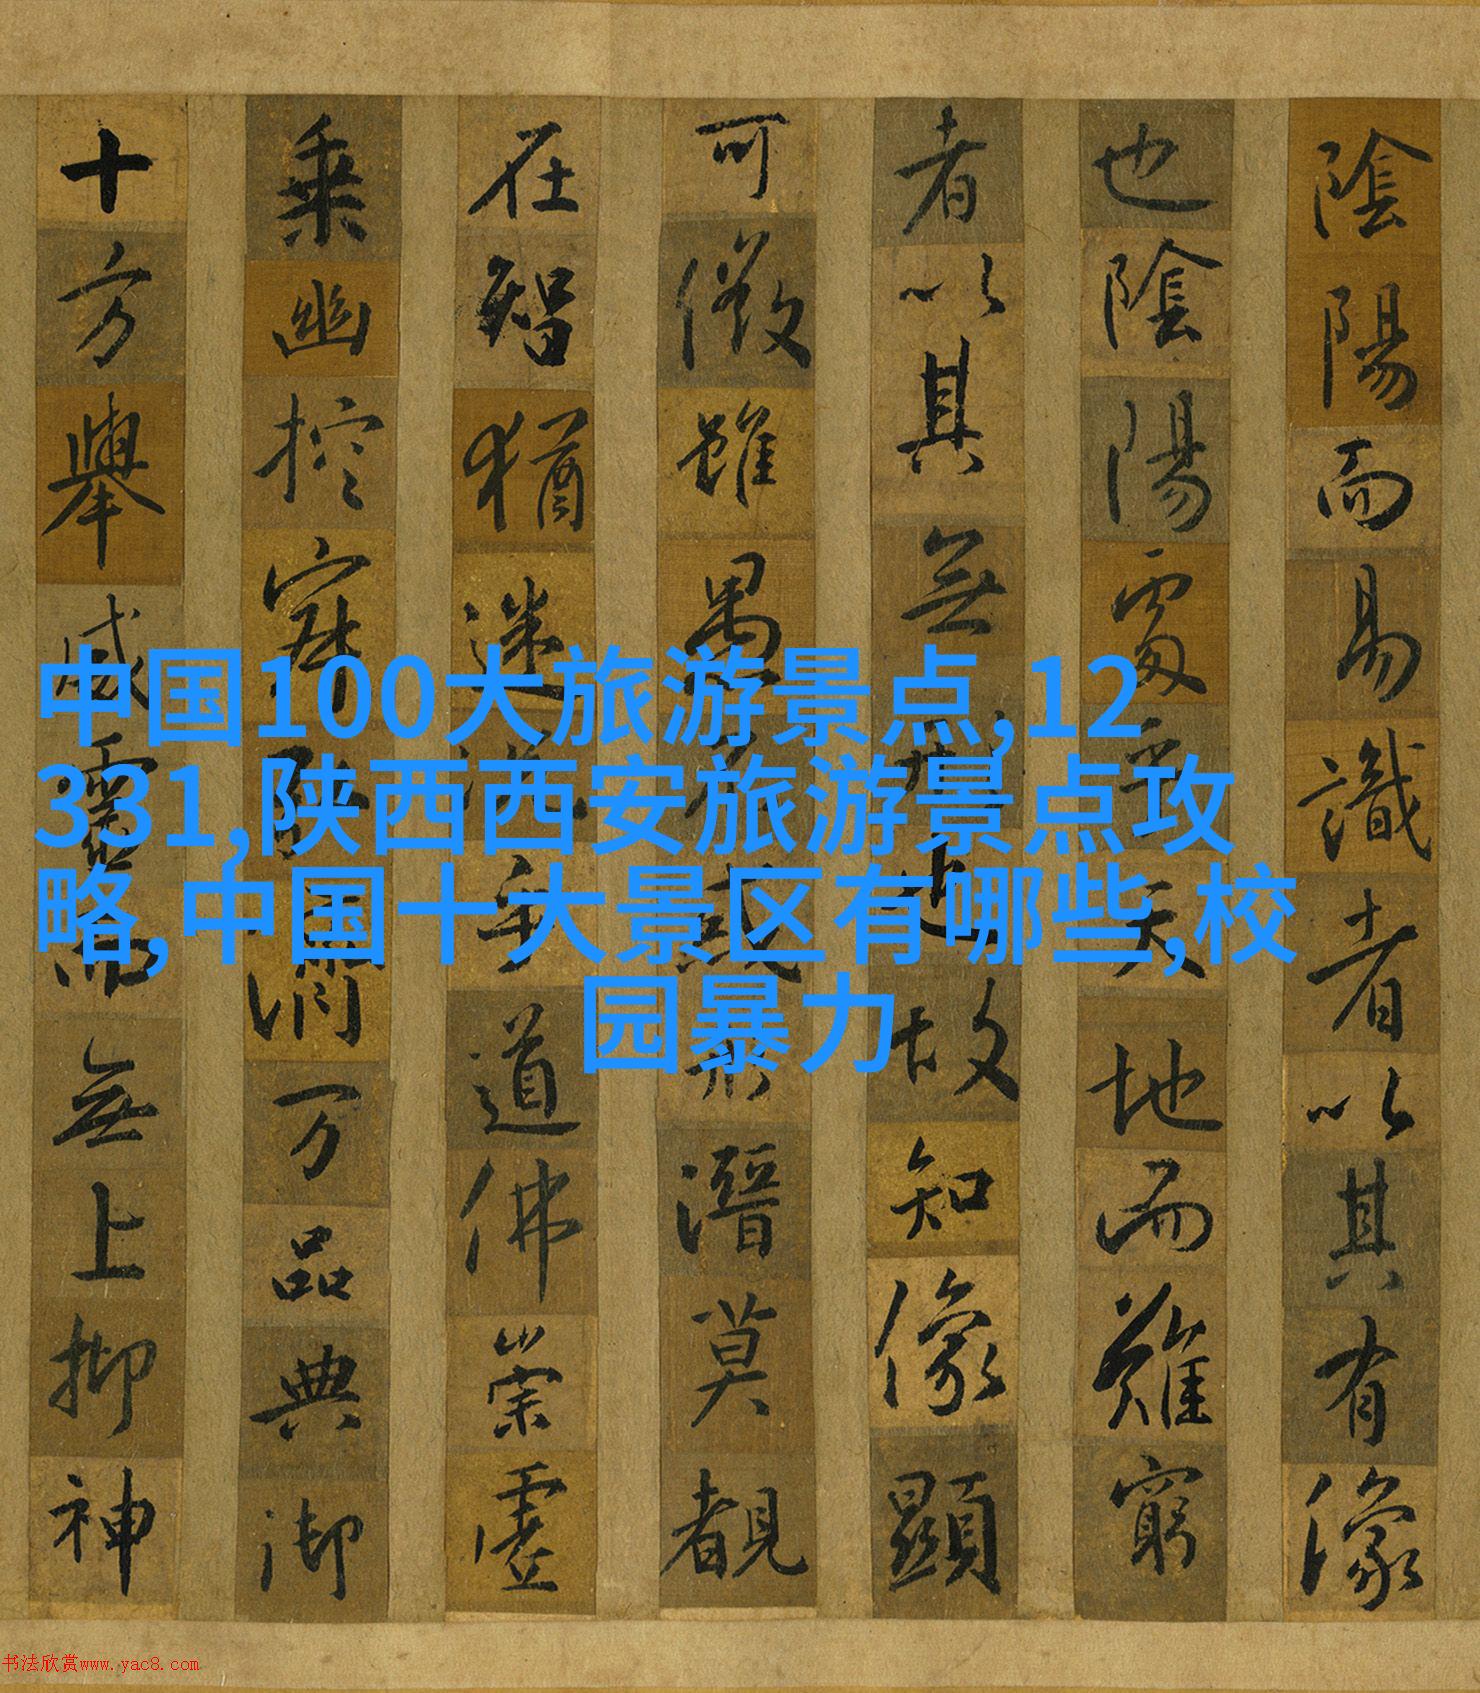 陰陽而易識者以其有像
也陰陽處乎天地而難窮
者以其無形也故知像顯
可徵雖愚不惑形潛莫覩
在智猶迷況乎道佛崇虛
乗幽控寂弘濟万品典御
十方舉威靈而無上抑神
中国100大旅游景点,12
331,陕西西安旅游景点攻
略,中国十大景区有哪些,校
园暴力
书法欣赏www.yac8.com